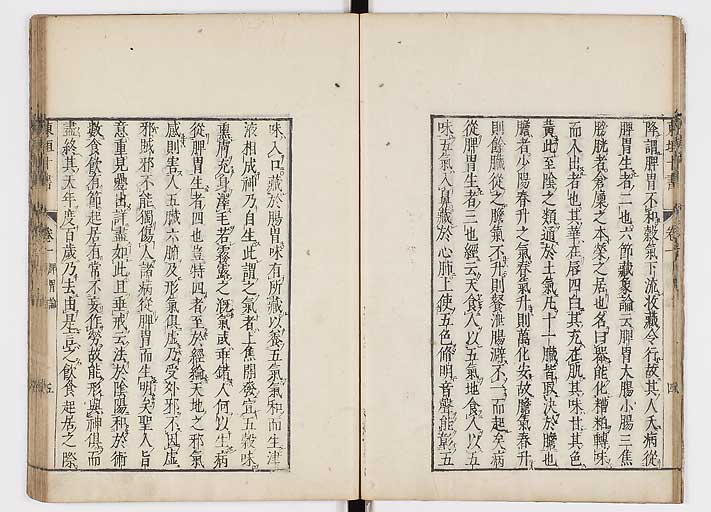 降謂脾胃不和穀氣下流收藏令行故其人夭病從
脾胃生者二也六節藏象論云脾胃大腸小腸三焦
膀胱者倉廩之本榮之居也名曰器能化糟粕轉味
而入出者也其華在唇四白其充在肌其味甘其色
黃此至陰之類通於土氣凡十一臟皆取決於膽也
膽者少陽春升之氣春氣升則萬化安故膽氣春升
則餘臟從之膽氣不升則飱泄腸澼不一而起矣病
從脾胃生者三也經云天食人以五氣地食人以五
味五氣入鼻藏於心肺上使五色脩明音聲能彰五
味入口藏於腸胃味有所藏以養五氣氣和而生津
液相成神乃自生此謂之氣者上焦開發宣五穀味
熏膚充身澤毛若霧露之溉氣或乖錯人何以生病
從脾胃生者四也豈特四者至於經論天地之邪氣
感則害人五臟六腑及形氣俱虛乃受外邪不因虛
邪賊邪不能獨傷人諸病從脾胃而生明矣聖人旨
意重見疊出詳盡如此且垂戒云法於陰陽和於術
數食飲有節起居有常不妄作勞故能形與神俱而
盡終其天年度百歲乃去由是言之飲食起居之際
東垣十書
卷一
脾胃論
五